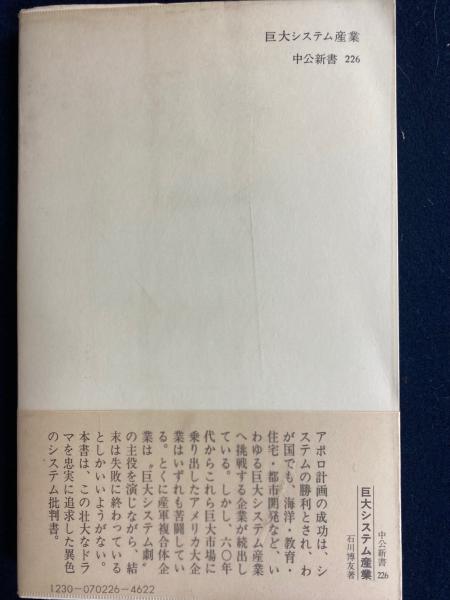 巨大システム産業
中公新書 226
アポロ計画の成功は、シ
ステムの勝利とされ、わ
が国でも、海洋・教育・
住宅・都市開発など、い
わゆる巨大システム産業
へ挑戦する企業が続出し
ている。しかし、六〇年
代からこれら巨大市場に
乗り出したアメリカ大企
業はいずれも苦闘してい
る。とくに産軍複合体企
業は〝巨大システム劇〟
の主役を演じながら、結
末は失敗に終わっている
としかいいようがない。
本書は、この壮大なドラ
マを忠実に追求した異色
のシステム批判書。
中公新書 226
巨大システム産業
石川博友著
1230-070226-4622